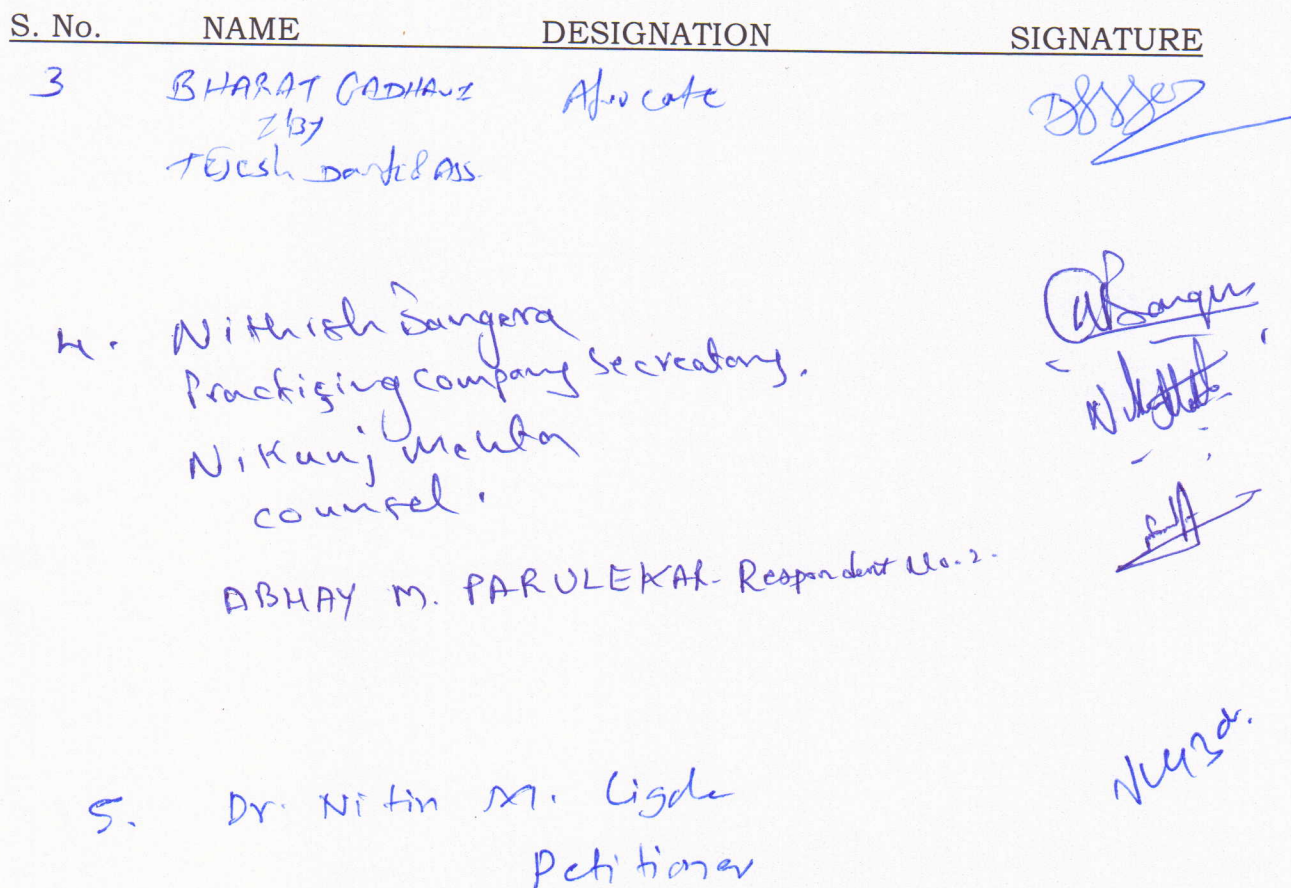 S. No. NAME DESIGNATION SIGNATURE
3 BHARAT GADHAVI Advocate
I/By
TEJesh & Ass.
4. Nithish Bangera
Practising Company Secreatary.
Nikunj Mehta
counsel.
ABHAY M. PARULEKAR - Respondent No. 2.
5. Dr. Nitin M.
Petitioner